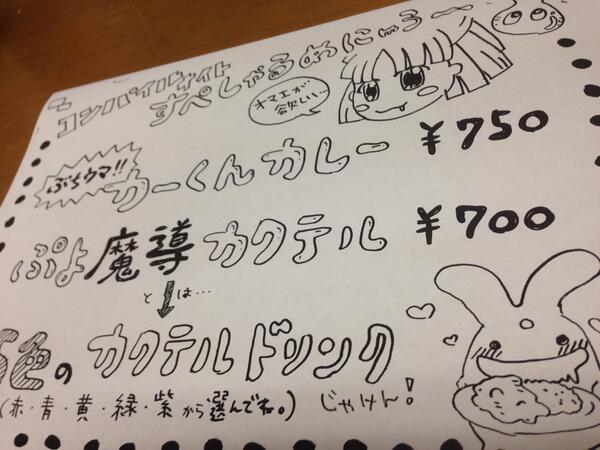 コンパイルナイト
すぺしゃるめにゅう〜
オマエが
欲しい…
ぶちウマ!!
カーくんカレー ¥750
ぷよ魔導カクテル ¥700
とは…
5色のカクテルドリンク
(赤・青・黄・緑・紫から選んでね。) じゃけん!